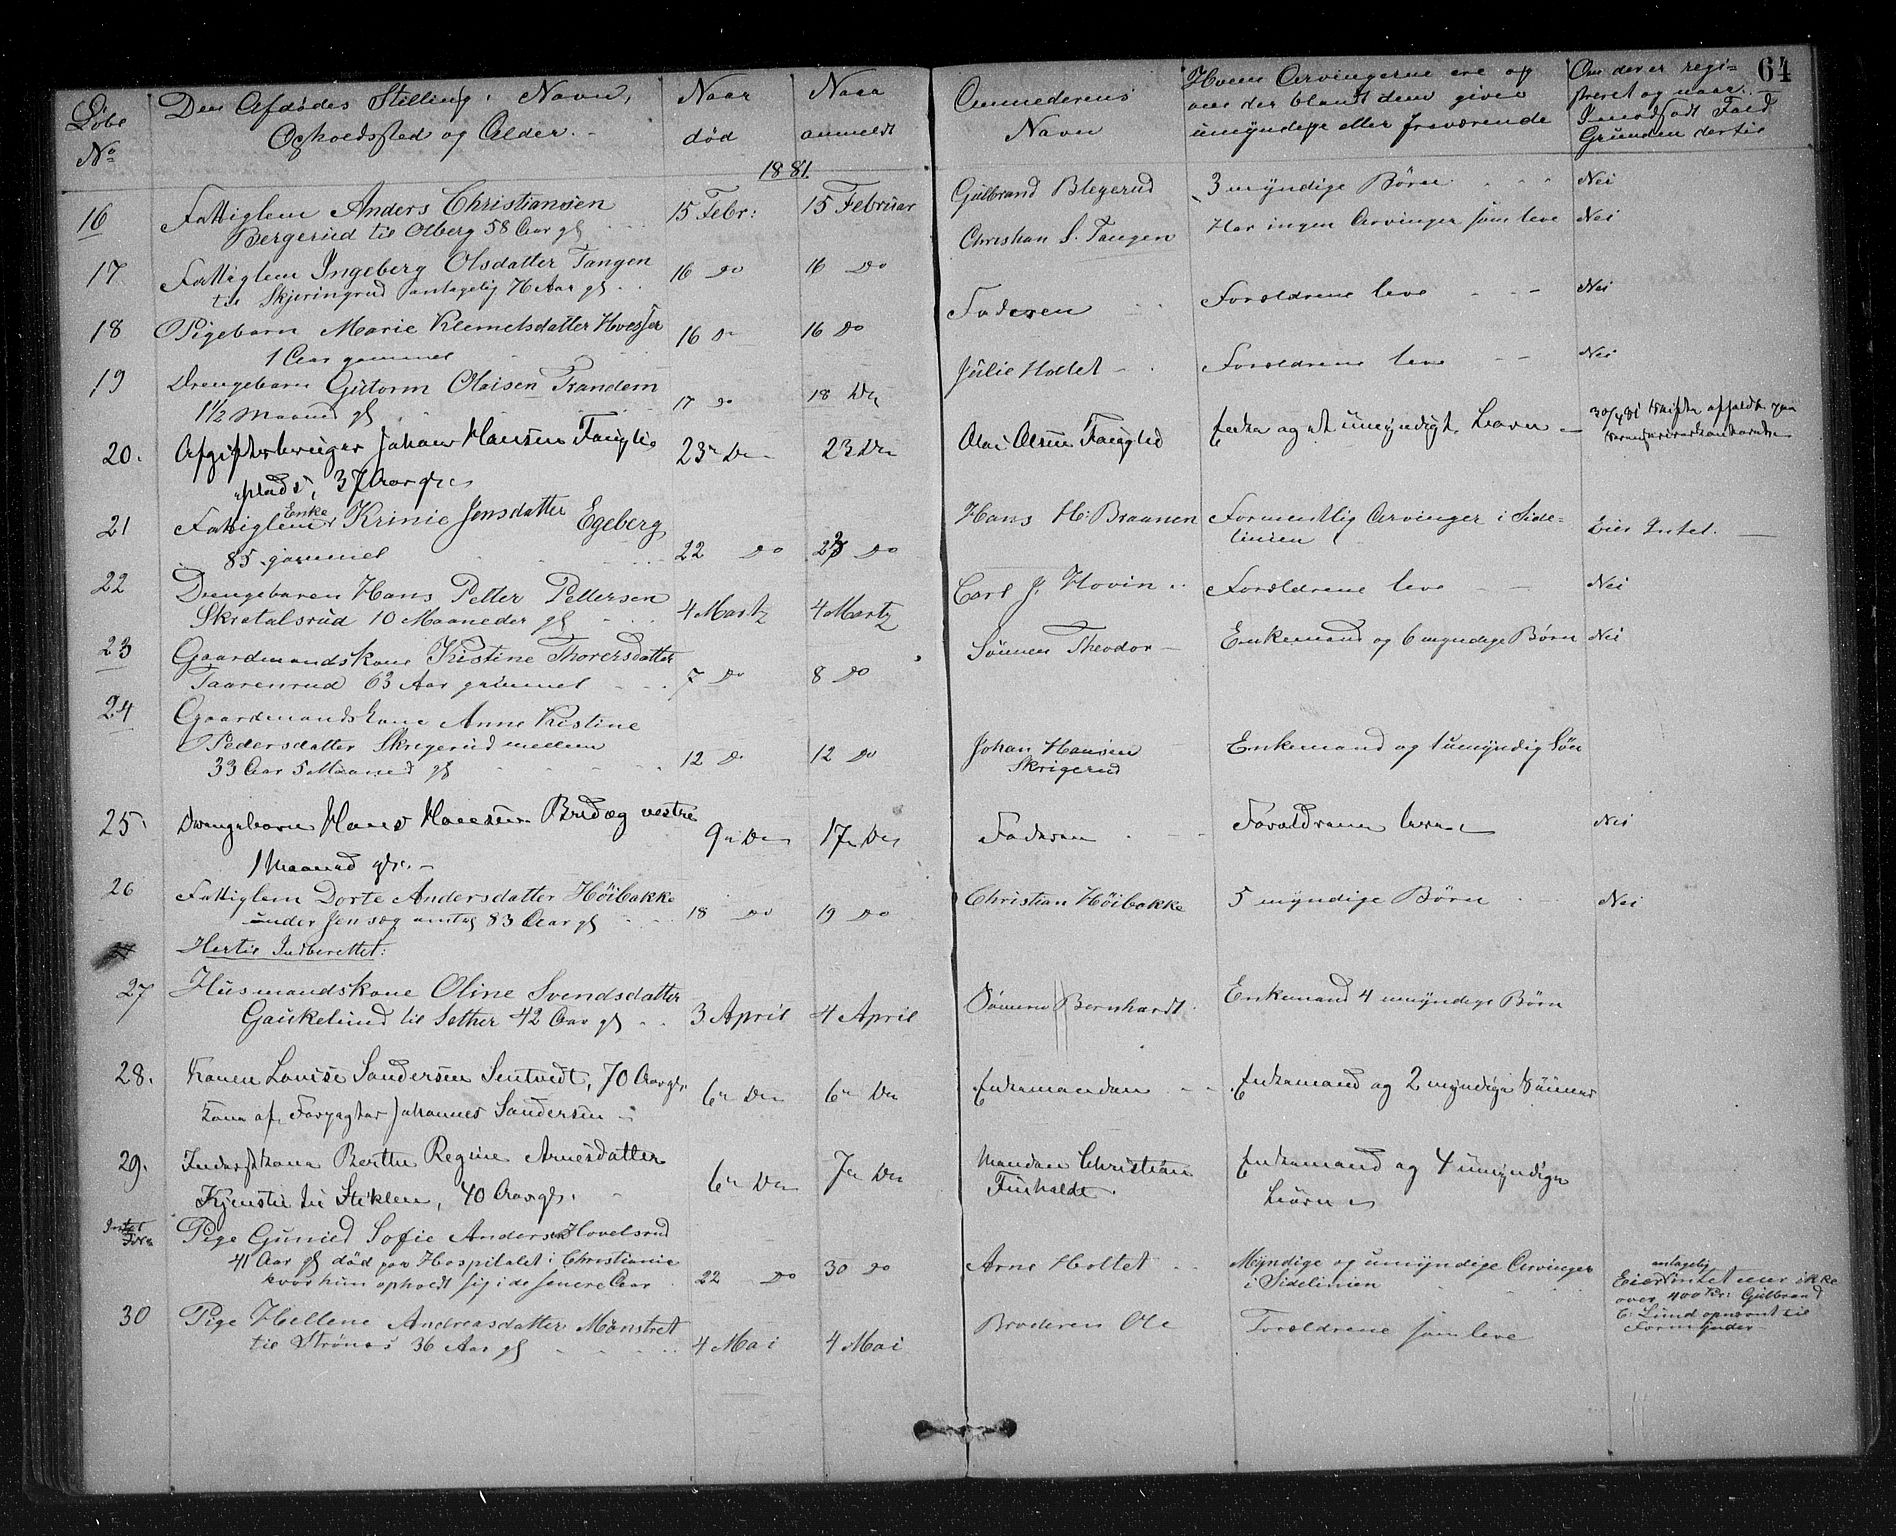 64
Løbe No
Den Afdødes Stilling, Navn,
Opholdssted og Alder.
Naar død
Naar anmeldt
Anmelderens Navn
Hvem Arvingerne ere og
om der blandt dem gives
umyndige eller fraværende
Om der er regi-
streret og naar.
I modsat Fald
Grunden dertil
1881.
16 Fattiglem Anders Christiansen 15 Febr: 15 Februar Gulbrand Blegerud 3 myndige Børn Nei
Bergerud til Olberg 58 Aar gl
17 Fattiglem Ingeberg Olsdatter Tangen 16 Do 16 Do Christian S. Tangen Har ingen Arvinger som leve Nei
til Skjeringrud antagelig 76 Aar gl
18 Pigebarn Marie Klemetsdatter 16 Do 16 Do Faderen Forældrene leve Nei
1 Aar gammel
19 Drengebarn Gutorm Olaisen Trandem 17 Do 18 Do Julie Holtet Forældrene leve Nei
1½ Maaned gl
20. Afgiftsbruger Johan Hansen 23 Do 23 Do Olai Olsen Enke og et umyndigt Barn 30/4 81 Skifte afholdt
plads, 37 Aar gl.
21 Fattiglem Enke Krinie Jensdatter Egeberg Hans H: Braanen Formentlig Arvinger i Side- Eier Intet.
85 gammel 22 Do 23 Do linien
22 Drengebaren Hans Petter Pettersen 4 Martz 4 Martz Carl J. Hovin Forældrene leve Nei
Skretalsrud 10 Maaneder gl
23 Gaardmandskone Kistine Thorersdatter 7 Do 8 Do Sønnen Theodor Enkemand og 6 myndige Børn Nei
Taarenrud 63 Aar gammel
24 Gaardmandskone Anne Kistine
Pedersdatter Skrigerud mellem 12 Do 12 Do Johan Hansen Enkemand og 1 umyndig Søn
33 Aar 5 Maaned gl Skrigerud
25. Drengebarn Hans Hansen Bredeg vestre 9 Do 17 Do Faderen Forældrene leve Nei
1 Maaned gl.
26 Fattiglem Dorte Andersdatter Høibakke 18 Do 19 Do Christian Høibakke 5 myndige Børn Nei
under Jensæg antag 83 Aar gl
Hertil Indberettet:
27 Husmandskone Oline Svendsdatter 3 April 4 April Sønnen Bernhardt Enkemand 4 umyndige Børn
Gaukelund til Sether 42 Aar gl
28. Konen Lovise Sandersen Sentvedt, 70 Aar gl. 6 Do 6 Do Enkemanden Enkemand og 2 myndige Sønner
Kone af Forpagter Johannes Sandersen
29. Inderstkone Berthe Regine Arnesdatter 6 Do 7 Do Manden Christian Enkemand og 4 umyndige
Kjenstie til Stiklen, 40 Aar gl. Finholdt Børn
Pige Gunild Sofie Andersen Hovelsrud
41 Aar gl død paa Hospitalet i Christiania 22 Do 30 Do Arne Holtet Myndige og umyndige Arvinger
hvor hun opholdt sig i de senere Aar i Sidelinien
antagelig
Eier intet mer ikke
over 400 Kr: Gulbrand
C. Lund opnævnt til
Formynder
30 Pige Hellene Andreasdatter Mønstret Broderen Ole Forældrene som leve
til Strønes 36 Aar gl 4 Mai 4 Mai